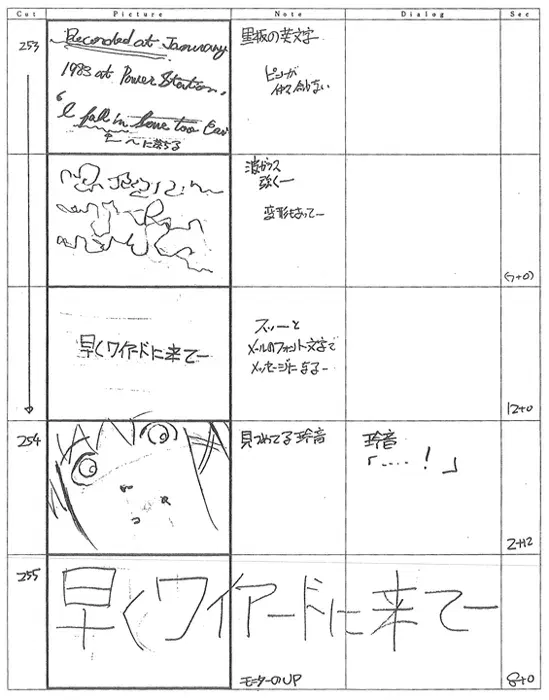 Cut Picture Note Dialog Sec
253
Recorded at January
1983 at Power Station,
"I fall in Love too Eas
黒板の英文字
ピンが
合わない
波ガラス
強くー
変形もあってー
(7+0)
早くワイヤードに来てー
スゥーと
メールのフォント文字で
メッセージになるー
12+0
254
見つめてる玲音
玲音
「‥‥!」
2+12
255
早くワイヤードに来てー
モニターのUP
8+0